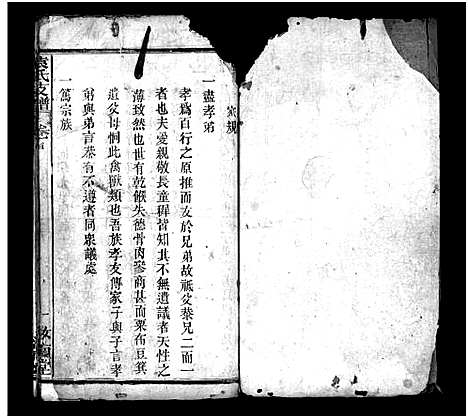 家規
一盡孝弟
孝爲百行之原推而友於兄弟故祗父恭兄二而一
者也夫愛親敬長童穉皆知其不無遺議者天性之
薄致然也世有乾餱失德骨肉參商甚而粟布豆箕
遺父母恫此禽獸類也吾族孝友傳家子與子言孝
弟與弟言恭有不遵者同衆議處
一篤宗族
袁氏支譜
卷首